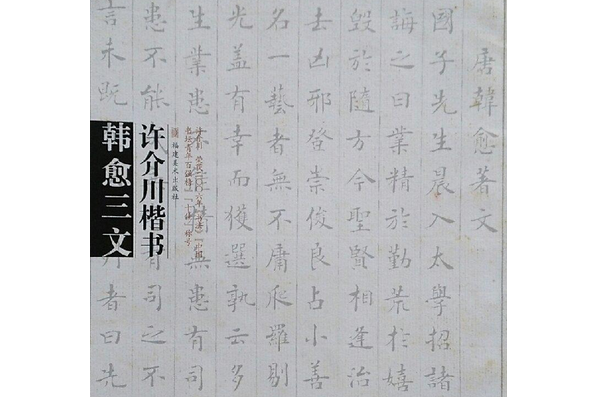 唐韓愈著文
國子先生晨入太學招諸
誨之曰業精於勤荒於嬉
毀於隨方今聖賢相逢治
去凶邪登崇俊良占小善
名一藝者無不庸爬羅剔
光蓋有幸而獲選孰云多
生業患無患有司
患不能有司之不
言未既者曰先
许介川楷书
韩愈三文
福建美术出版社